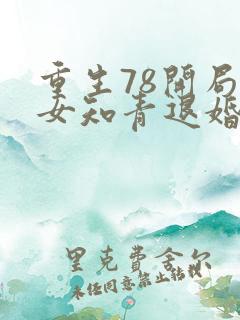 重生78开局
女知青退婚
里克费舍尔
未经同意禁止转载